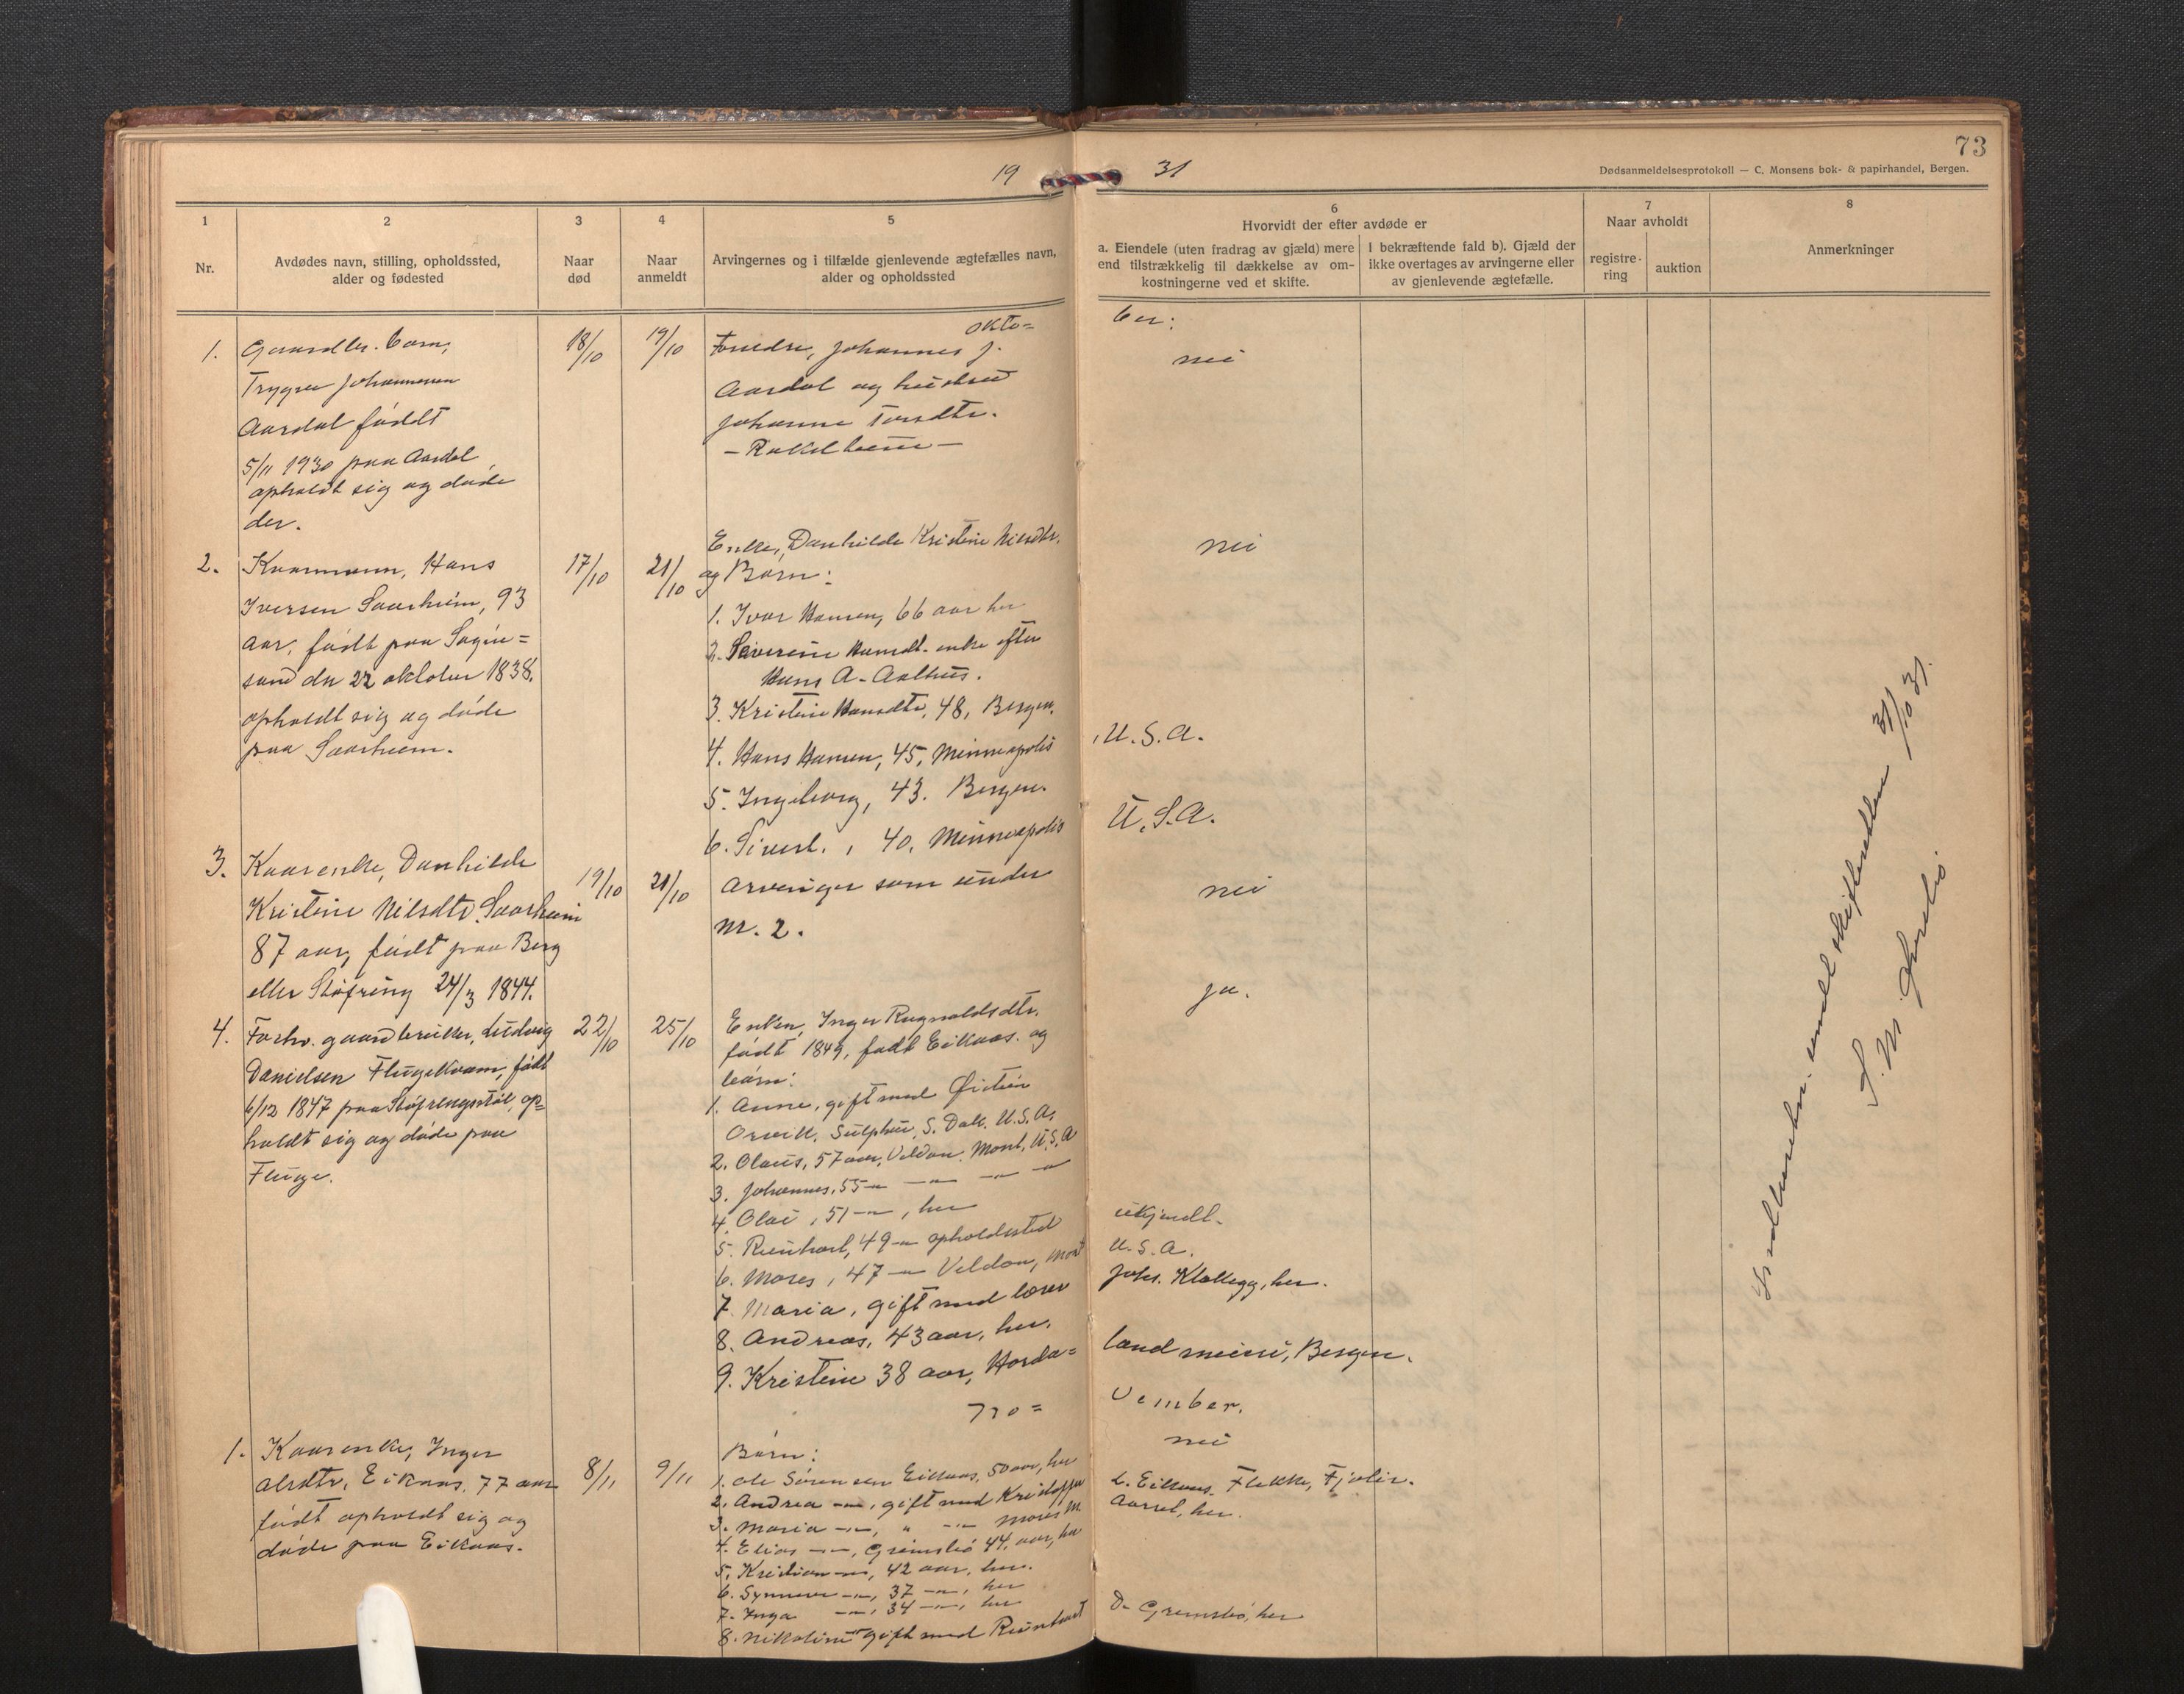 73
19 31
Dødsanmeldelsesprotokoll — C. Monsens bok- & papirhandel, Bergen.
1 2 3 4 5 6 7 8
Nr.
Avdødes navn, stilling, opholdssted,
alder og fødested
Naar
død
Naar
anmeldt
Arvingernes og i tilfælde gjenlevende ægtefælles navn,
alder og opholdssted
Hvorvidt der efter avdøde er
a. Eiendele (uten fradrag av gjæld) mere
end tilstrækkelig til dækkelse av om-
kostningerne ved et skifte.
I bekræftende fald b). Gjæld der
ikke overtages av arvingerne eller
av gjenlevende ægtefælle.
Naar avholdt
registre-
ring
auktion
Anmerkninger
Okto= ber:
1. Gaardbr. barn,
Trygve Johannessen
Aardal født
5/11 1930 paa Aardal,
opholdt sig og døde
der.
18/10
19/10
Foreldre, Johannes J.
Aardal og hustru
Johanne Torsdtr.
nei
2. Kaarmann, Hans
Iversen Saarheim, 93
aar, født paa Sogne=
sund den 22 oktober 1838,
opholdt sig og døde
paa Saarheim.
17/10
21/10
Enke, Danhilde Kristine Nilsdtr.
og Børn:
1. Ivar Hansen, 66 aar her
2. Severine Hansdt. enke efter
Hans A. Aalhus.
3. Kristine Hansdtr, 48, Bergen.
4. Hans Hansen, 45, Minneapolis, U.S.A.
5. Ingeborg, 43. Bergen.
6. Sivert, 40, Minneapolis U.S.A.
nei
3. Kaarenke, Danhilde
Kristine Nilsdtr. Saarheim
87 aar, født paa Berg
eller Støfring 24/3 1844.
19/10
21/10
Arvinger som under
nr. 2.
nei
4. Forhv. gaardbruker, Ludvig
Danielsen Flugekvam, født
6/12 1847 paa Støfringstøl, op=
holdt sig og døde paa
Fluge.
22/10
25/10
Enken, Inger Ragnvaldsdtr.
født 1849, født Eikaas. og
børn:
1. Anne, gift med
Sulphur, S. Dak. U.S.A.
2. Olaus, 57 aar, Veldon. Mont, U.S.A
3. Johannes, 55 -"- -"- -"- -"-
4. Olai, 51 -"-, her
5. Reinhart, 49 -"- opholdssted ukjendt.
6. Moses, 47 -"- Veldon, Mont U.S.A.
7. Maria, gift med lærer Johs. Klakegg, her.
8. Andreas, 43 aar, her.
9. Kristine 38 aar, Horda= land meieri, Bergen.
ja.
No= vember.
1. Kaarenke, Inger
Olsdtr. Eikaas, 77 aar
født opholdt sig og
døde paa Eikaas.
8/11
9/11
Børn:
1. Ole Sørensen Eikaas, 50 aar, her
2. Andrea -"-, gift med Kristoffer L. Eikaas. Flekke, Fjaler.
3. Maria -"-, " -"- Moses M. Aarset, her.
4. Elias -"-, Grimsbø 44. aar, her
5. Kristian -"-, 42 aar, her.
6. Synneve -"-, 37 -"-, her
7. Inga -"-, 34 -"-, her
8. Nikoline -"- gift med Reinhart D. Grimsbø, her
nei
31/10 31.